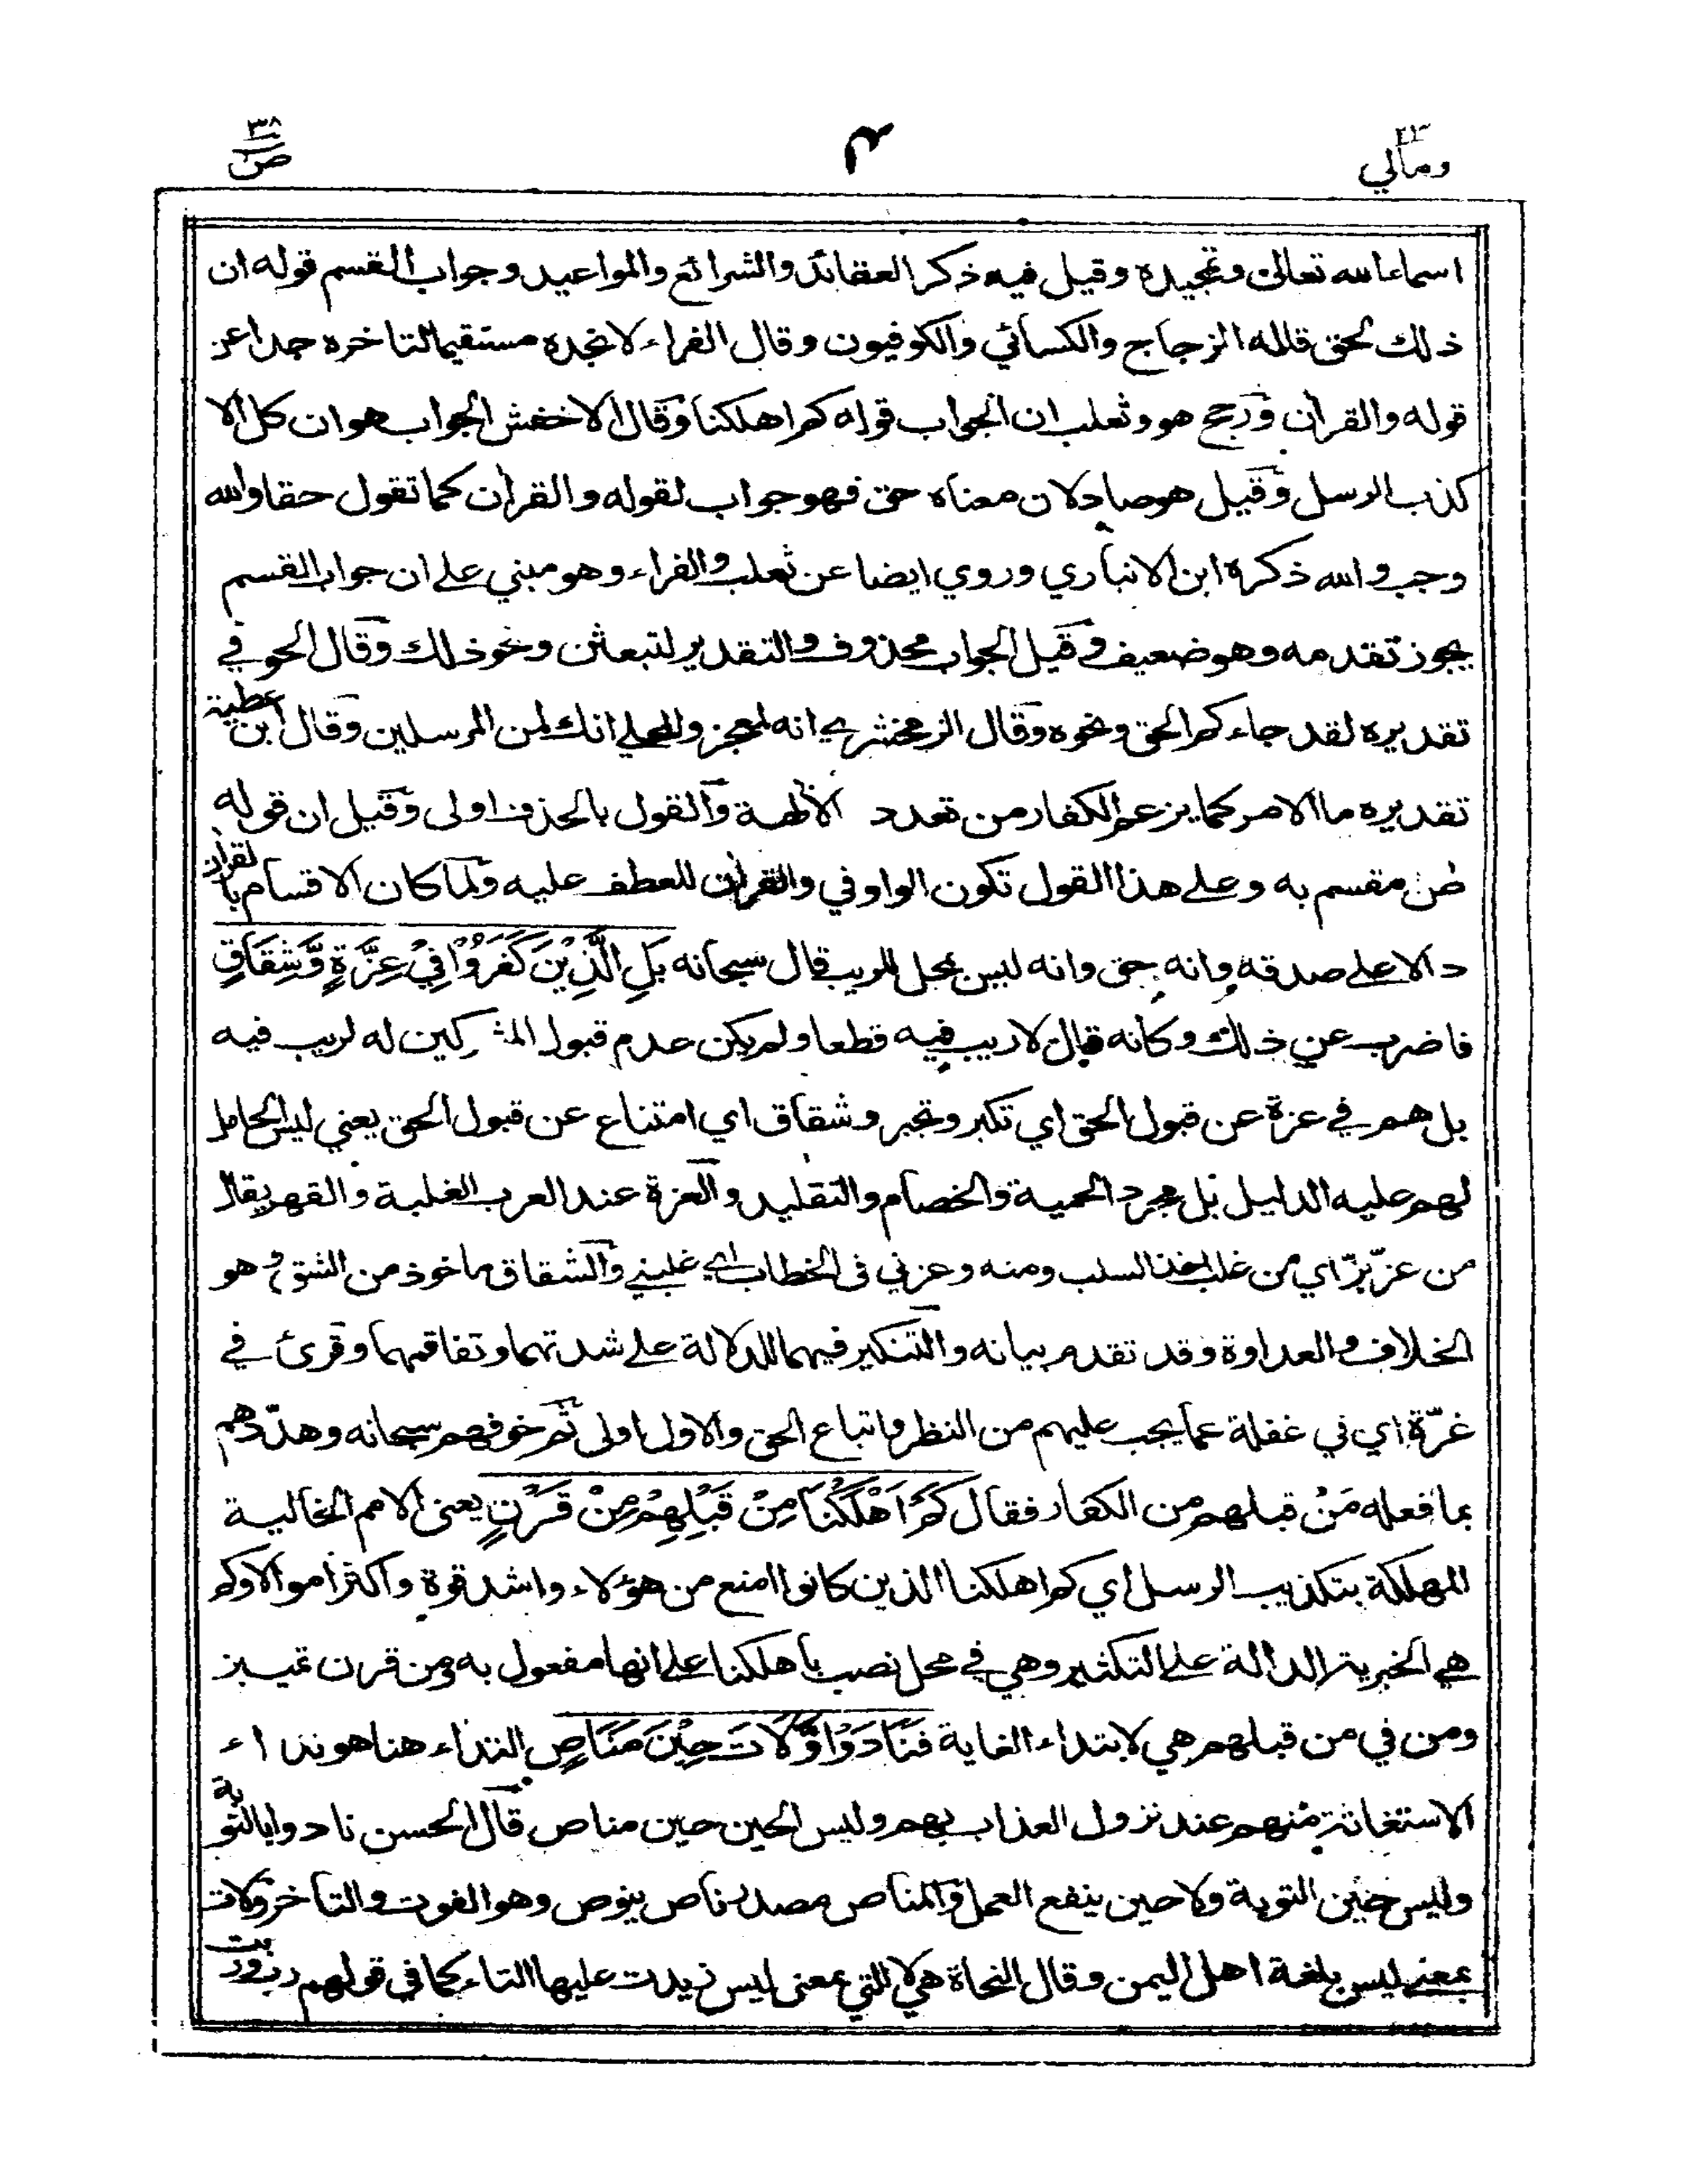 ومالي ٢٣
٤
ص ٣٨
اسماء الله تعالى وتمجيده وقيل فيه ذكر العقائد والشرائع والمواعيد وجواب القسم قوله ان
ذلك لحق قاله الزجاج والكسائي والكوفيون وقال الفراء لا نجده مستقيما لتاخره جدا عن
قوله والقرآن ورجح هو وثعلب ان الجواب قوله كم اهلكنا وقال الاخفش الجواب هو ان كل الا
كذب الرسل وقيل هو صاد لان معناه حق فهو جواب لقوله والقرآن كما تقول حقا والله
وجب والله ذكره ابن الانباري وروي ايضا عن ثعلب والفراء وهو مبني على ان جواب القسم
يجوز تقدمه وهو ضعيف وقيل الجواب محذوف والتقدير لتبعثن ونحو ذلك وقال الحوفي
تقديره لقد جاءكم الحق ونحوه وقال الزمخشري انه لمعجز والمحلي انك لمن المرسلين وقال ابن عطية
تقديره ما الامر كما يزعم الكفار من تعدد الآلهة والقول بالحذف اولى وقيل ان قوله
ص مقسم به وعلى هذا القول تكون الواو في والقرآن للعطف عليه ولما كان الاقسام بالقرآن
دالا على صدقه وانه حق وانه ليس بمحل للريب قال سبحانه بَلِ الَّذِيْنَ كَفَرُوْا فِيْ عِزَّةٍ وَّشِقَاقٍ
فاضرب عن ذلك وكانه قال لا ريب فيه قطعا ولم يكن عدم قبول المشركين له لريب فيه
بل هم في عزة عن قبول الحق اي تكبر وتجبر وشقاق اي امتناع عن قبول الحق يعني ليس الحامل
لهم عليه الدليل بل مجرد الحمية والخصام والتقليد والعزة عند العرب الغلبة والقهر يقال
من عزّ بزّ اي من غلب اخذ السلب ومنه وعزني فى الخطاب اي غلبني والشقاق ماخوذ من الشق وهو
الخلاف والعداوة وقد تقدم بيانه والتنكير فيهما للدلالة على شدتهما وتفاقمهما وقرئ في
غرّة اي في غفلة عما يجب عليهم من النظر واتباع الحق والاول اولى ثم خوفهم سبحانه وهدّدهم
بما فعله مَنْ قبلهم من الكفار فقال كَمْ اَهْلَكْنَا مِنْ قَبْلِهِمْ مِنْ قَرْنٍ يعنى الامم الخالية
المهلكة بتكذيب الرسل اي كم اهلكنا الذين كانوا امنع من هؤلاء واشد قوة واكثر اموالا وكم
هي الخبرية الدالة على التكثير وهي في محل نصب باهلكنا على انها مفعول به ومن قرن تمييز
ومن في من قبلهم هي لابتداء الغاية فَنَادَوْا وَّلَاتَ حِيْنَ مَنَاصٍ النداء هنا هو نداء
الاستغاثة منهم عند نزول العذاب بهم وليس الحين حين مناص قال الحسن نادوا بالتوبة
وليس حين التوبة ولا حين ينفع العمل والمناص مصدر ناص ينوص وهو الفوت والتاخر ولات
بمعنى ليس بلغة اهل اليمن وقال النحاة هي لا التي بمعنى ليس زيدت عليها التاء كما في قولهم رب وربت